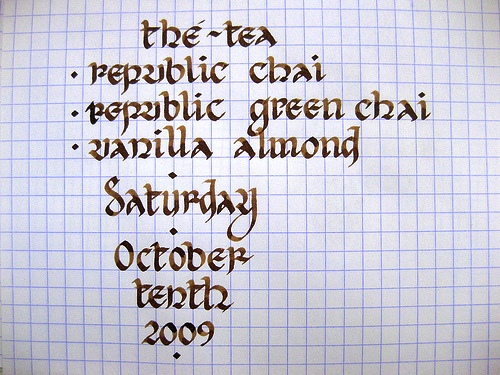 thé~tea
· republic chai
· republic green chai
· vanilla almond
Saturday
October
tenth
2009